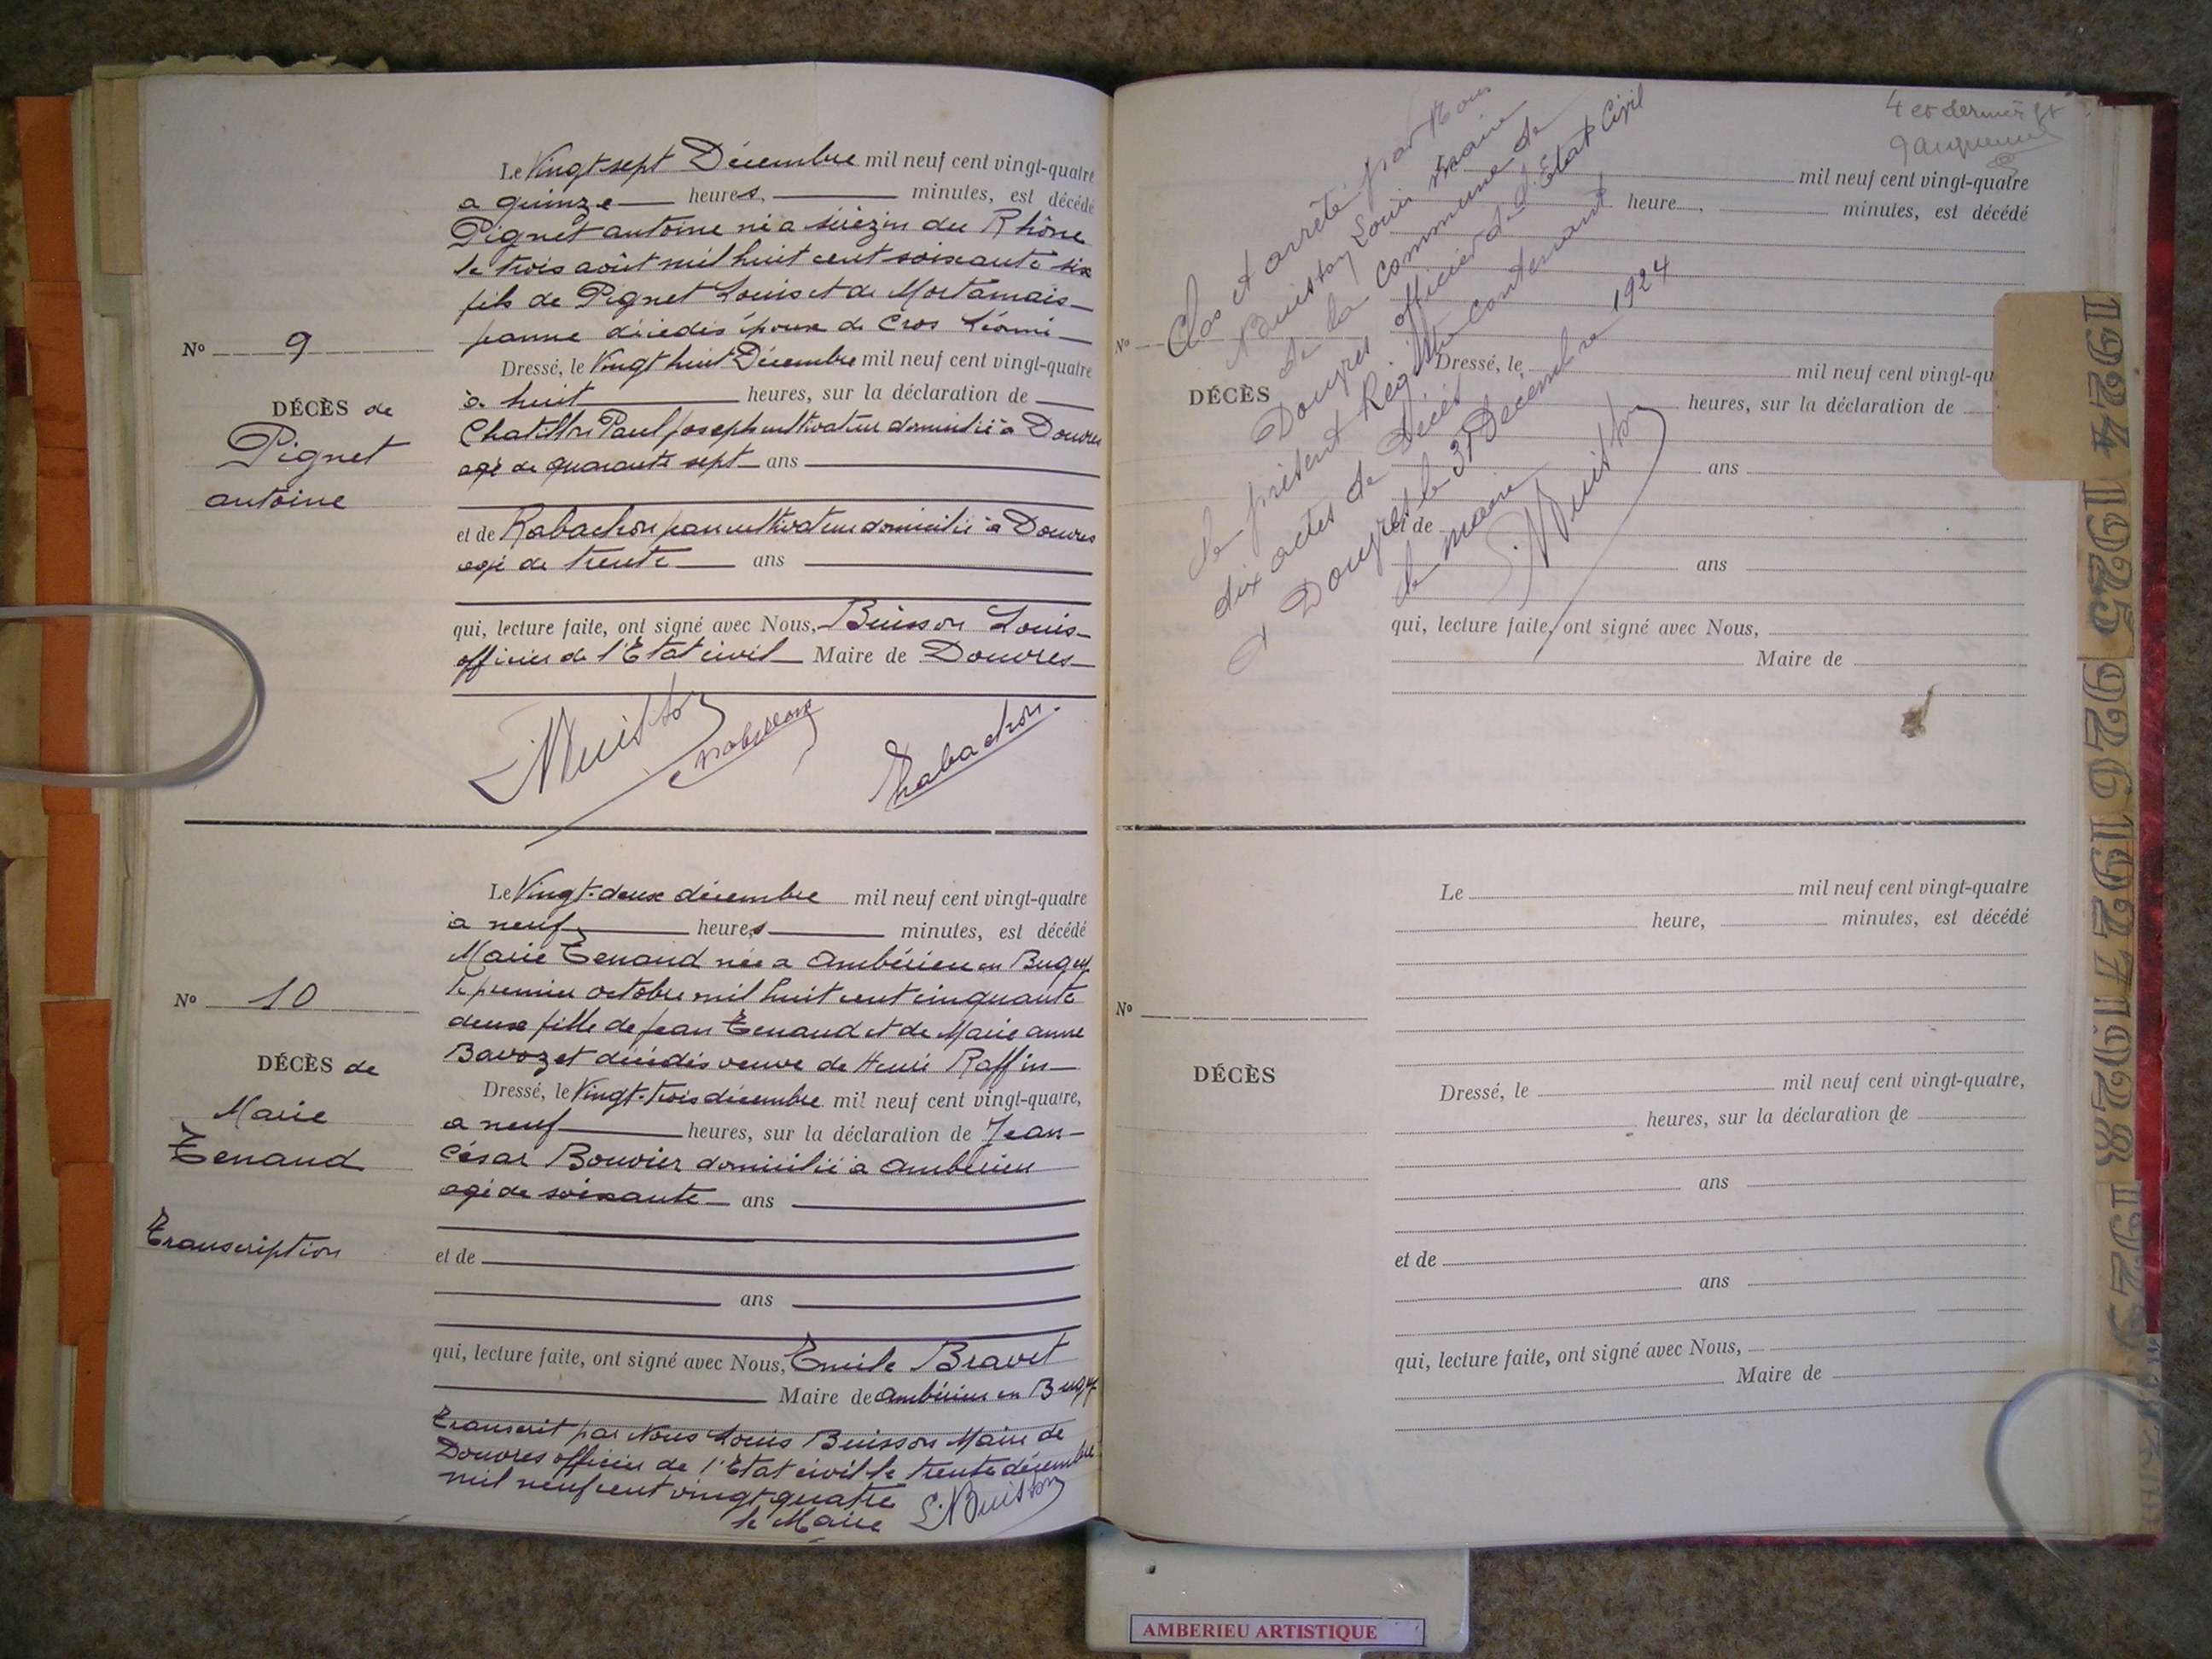 Le Vingt-sept Décembre mil neuf cent vingt-quatre
a quinze heures, minutes, est décédé
Pignet antoine né a du Rhône
le trois août mil huit cent soixante six
fils de Pignet Louis et de Mortamais
jeanne décédés époux de Cros
Nº 9
Dressé, le Vingt huit Décembre mil neuf cent vingt-quatre
à huit heures, sur la déclaration de
DÉCÈS de
Pignet
antoine
Chatillon Paul joseph cultivateur domicilié à Douvres
agé de quarante sept ans
et de Rabachon jean cultivateur domicilié à Douvres
agé de trente ans
qui, lecture faite, ont signé avec Nous, Buisson Louis
officier de l'Etat civil Maire de Douvres
L. Buisson
Rabachon
Le Vingt-deux décembre mil neuf cent vingt-quatre
à neuf heures minutes, est décédé
Marie Tenand née a Ambérieu en Bugey
le premier octobre mil huit cent cinquante
Nº 10
deux fille de jean Tenand et de Marie anne
Bavozet décédés veuve de Henri Raffin
DÉCÈS de
Marie
Tenand
Transcription
Dressé, le Vingt-trois décembre mil neuf cent vingt-quatre,
a neuf heures, sur la déclaration de Jean
César Bouvier domicilié à Ambérieu
agé de soixante ans
et de
ans
qui, lecture faite, ont signé avec Nous, Emile Bravet
Maire de Ambérieu en Bugey
Transcrit par Nous Louis Buisson Maire de
Douvres officier de l'Etat civil le trente décembre
mil neuf cent vingt quatre
le Maire L. Buisson
4 et dernier ft
Clos et arrêté par Nous
Buisson Louis Maire
de la Commune de
Douvres officier de l'Etat Civil
le présent Registre contenant
dix actes de décès
à Douvres le 31 Décembre 1924
le maire
L. Buisson
mil neuf cent vingt-quatre
heure , minutes, est décédé
Nº
DÉCÈS
Dressé, le mil neuf cent vingt-qu
heures, sur la déclaration de
ans
et de
ans
qui, lecture faite, ont signé avec Nous,
Maire de
Le mil neuf cent vingt-quatre
heure, minutes, est décédé
Nº
DÉCÈS
Dressé, le mil neuf cent vingt-quatre,
heures, sur la déclaration de
ans
et de
ans
qui, lecture faite, ont signé avec Nous,
Maire de
1924 1925 1926 1927 1928 1929
AMBERIEU ARTISTIQUE